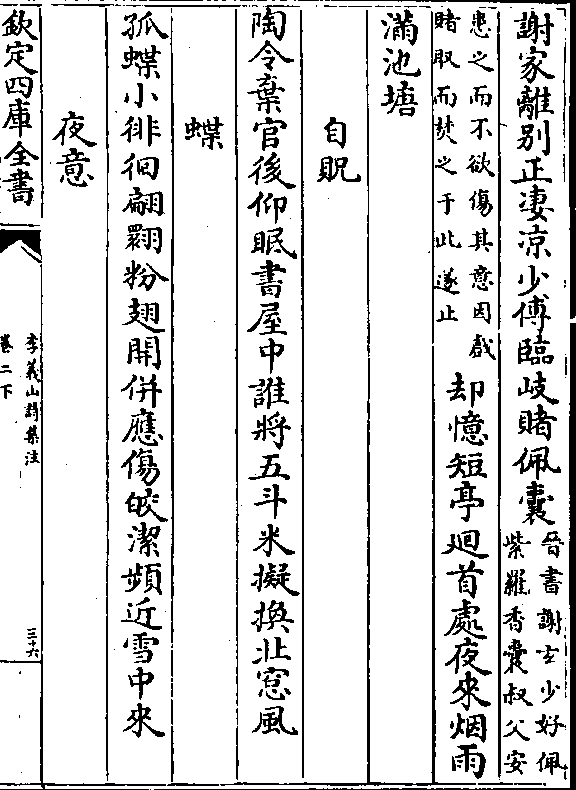 謝家離別正凄凉少傅臨岐賭佩囊晉書謝玄少好佩
紫羅香囊叔父安
患之而不欲傷其意因戲
賭取而焚之于此遂止
却憶短亭廻首處夜來烟雨
滿池塘
自貺
陶令棄官後仰眠書屋中誰將五斗米擬換北窓風
蝶
孤蝶小徘徊翩翾粉翅開併應傷皎潔頻近雪中來
夜意
欽定四庫全書
李義山詩集注
卷二下
三十六